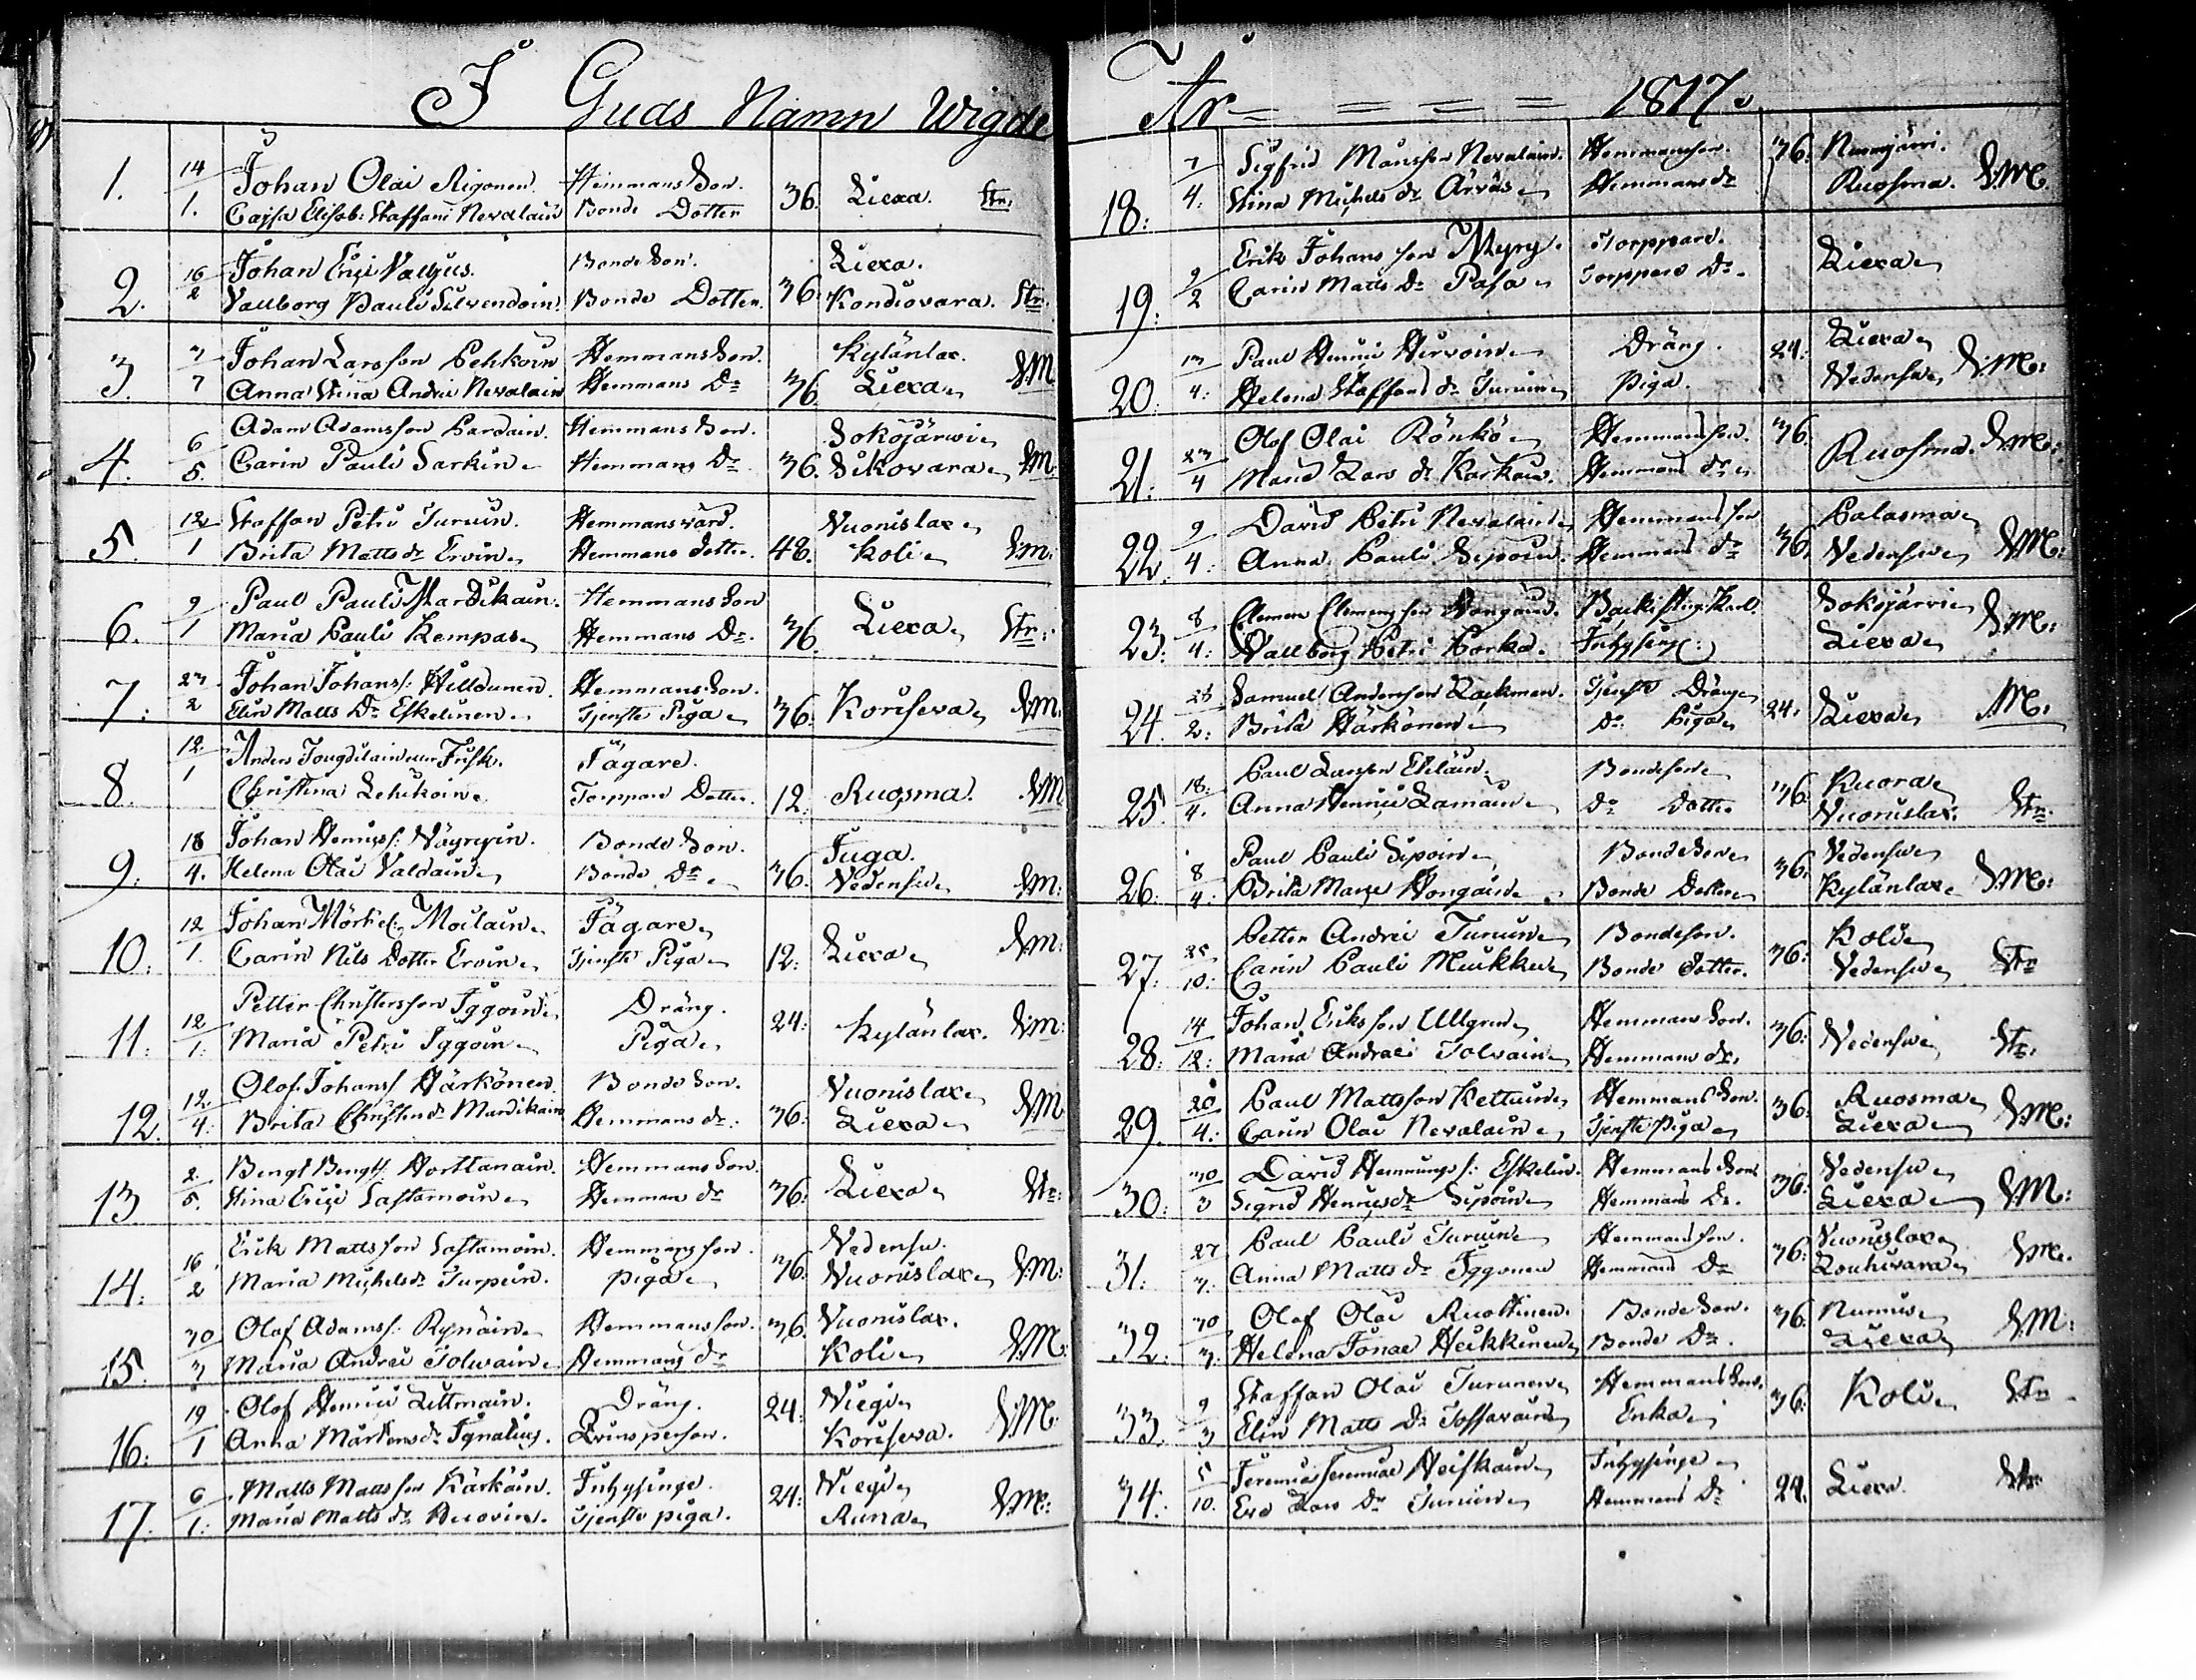 I Guds Namn Wigde
1. 14/1. Johan Olai Rigonen. Hemmans Son. 36. Liexa. Str.
Cajsa Elisab: Staffani Nevalain Bonde Dotter
2. 16/2 Johan Erici Valljus. Bonde Son. 36. Liexa.
Vallborg Pauli Silvendoin. Bonde Dotter. Kondiovara. Str.
3. 7/7 Johan Larsson Pehkoin Hemmans Son. Kylänlax.
Anna Stina Andrei Nevalain Hemmans Dr 36. Liexa V.M
4. 6/5. Adam Adamsson Pardain. Hemmans Son. Sokojärwi
Carin Pauli Sarkin Hemmans Dr 36. Sikovara V.M.
5. 12/1 Staffan Petri Turuin. Hemmansvärd. Vuonislax
Brita Matts dr Ervin Hemmans dotter. 48. Koli V.M:
6. 9/1 Paul Pauli Mardikain. Hemmans Son
Maria Pauli Kempas Hemmans Dr. 36. Liexa Str:
7. 27/2 Johan Johans s: Hilldunen. Hemmans Son.
Elin Matts Dr Eskelinen. Tjenste Piga 36. Koriseva V.M.
8. 12./1 Anders Frisk. Jägare.
Christina Lehikoin. Torppare Dotter. 12. Ruosma. V.M
9. 18/4. Johan Henrics s: Väyrysin. Bonde Son. Juga.
Helena Olai Valdain Bonde Dr 36. Vedensu V.M:
10. 12/1. Johan Moilain Jägare
Carin Nils Dotter Ervin Tjenste Piga 12. Liexa V.M:
11. 12/1. Petter Christersson Iggoin Dräng. 24: Kylänlax. V.M:
Maria Petri Iggoin Piga
12. 12/4. Olof Johans s Härkönen Bonde Son. Vuonislax
Brita Christer dr Mardikain Hemmans dr. 36. Liexa V.M:
13 2/5. Bengt Bengts s: Horttanain. Hemmans Son.
Stina Erici Sastamoin Hemman dr 36: Liexa Str:
14. 16/2 Erik Mattsson Sastamoin. Hemmans son. Vedensu.
Maria Michels dr Turpein. piga 36: Vuonislax V.M:
15. 30/3 Olof Adams s: Rynäin Hemmans son. 36. Vuonislax.
Maria Andrei Tolwain Hemmans dr Koli V.M:
16. 19/1 Olof Henrici Littmain. Dräng. 24: Viegi
Anna Mårtens dr Ignatius. Qvinsperson. Koriseva. V.M:
17. 6/1. Matts Mattsson Kärkäin. Inhysinge. 24: Viegi
Maria Matts dr Tjenste piga. Runa V.M:
År = = = = 1817.
18: 7/4. Sigfrid Månsson Nevalain. Hemmanson. 36.
Stina Michels dr Ärväs Hemmans dr Ruosma. V.M.
19: 9/2 Erik Johansson Myry. Torppare. Liexa
Carin Matts Dr Pasa Torppare Dr.
20: 13/4. Paul Henrici Hirvoin Dräng. 24: Liexa
Helena Staffans dr Turuin Piga. Vedensu V.M:
21: 23/4 Olof Olai Rönkö Hemmansson. 36.
Maria Lars dr Karkain. Hemmans dr Ruosma. V.M:
22. 9/4. David Petri Nevalain Hemmansson Palasma
Anna Pauli Sipoin. Hemmans dr 36. Vedensu V.M:
23. 8/4: Clemen Clemensson Hongain. Sokojärvi
Vallborg Petri Porka. Inhysing: Liexa V.M:
24. 28/2: Samuel Andersson Tjenste Dräng
Brita Härkönen Dr Piga 24. Liexa M.
25. 18./4. Paul Larsson Eteläin. Bondeson 36. Kuora
Anna Henrici Lamain Dr Dotter. Vuonislax. Str.
26. 8/4. Paul Pauli Sipoin Bonde Son 36. Vedensu
Brita Hongain Bonde Dotter Kylänlax. V.M:
27. 25/10. Petter Andrei Turuin Bondeson. 36: Koli
Carin Pauli Muikku Bonde dotter. Vedensu Str
28: 14/12: Johan Eriksson Ullgren Hemmans Son. 36: Vedensu Str.
Maria Andraei Tolvain Hemmans dr.
29. 20/4: Paul Mattsson Kettuin Hemmans Son. 36: Ruosma
Carin Olai Nevalain Tjenste Piga Liexa V.M:
30: 30/3 David Hemmings s: Eskelin. Hemmans Son 36: Vedensu
Sigrid Henrics dr Sipoin Hemmans Dr. Liexa V.M:
31: 27/3. Paul Pauli Turuin Hemmans son. 36: Vuonislax
Anna Matts dr Iggonen Hemmans Dr Louhivara V.M.
32. 30/3. Olof Olai Ruottinen. Bonde Son. 36.
Helena Jonae Heikkinen Bonde Dr. Liexa V.M:
33. 9/3 Staffan Olai Turunen Hemmans Son. 36: Koli Str
Elin Matts Dr Enka
34. 5/10. Jeremias Jeremiae Heiskain Inhysinge
Eva Lars Dr Turuin Hemmans Dr 24. Liexa. Str.